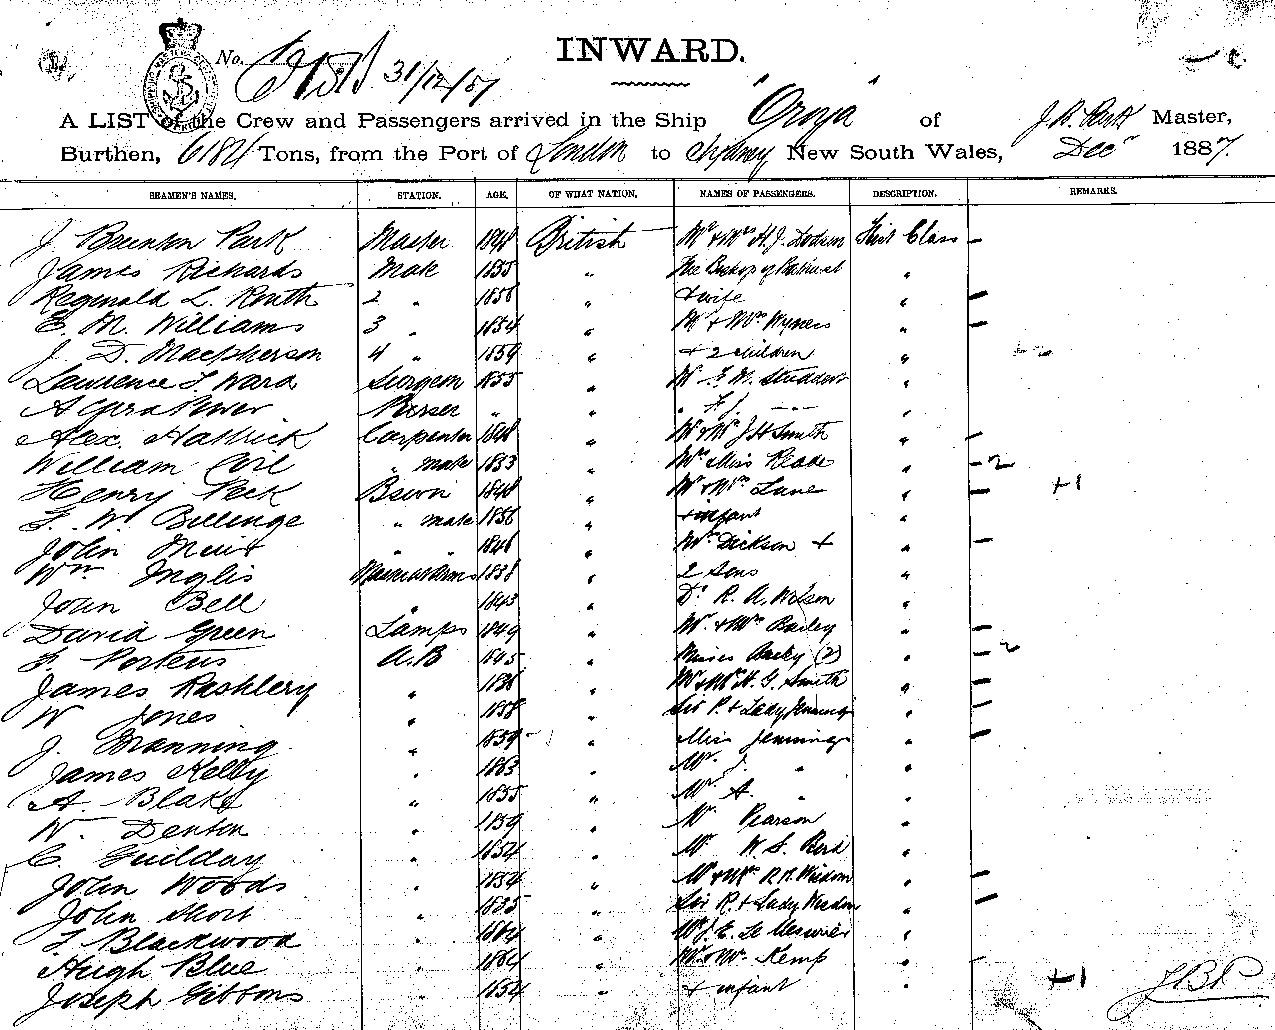 INWARD.
No. 31/12/87
A LIST of the Crew and Passengers arrived in the Ship "Oroya" of J. B. Park Master,
Burthen, 6184 Tons, from the Port of London to Sydney New South Wales, Decr 1887.
SEAMEN'S NAMES. STATION. AGE. OF WHAT NATION. NAMES OF PASSENGERS. DESCRIPTION. REMARKS.
J. Brenton Park Master 1848 British Mr & Mrs H. J. Dodson First Class -
James Rickards Mate 1855 " The Bishop of Bathurst "
Reginald L. Routh 2 " 1856 " & wife " -
E. M. Williams 3 " 1854 " Mr & Mrs Wyness " -
J. D. Macpherson 4 " 1859 " + 2 children "
Lawrence L. Ward Surgeon 1855 " Mr F. M. "
A Purser " " " F. J. - "
Alex. Hattrick Carpenter 1848 " Mr & Mrs J H Smith " -
William Coil " mate 1853 " Mrs & Miss Reade " - 2
Henry Peck Bswn 1848 " Mr & Mrs Lane " - +1
F. W. Billinge " mate 1856 " + infant "
John Muir " " 1846 " Mrs Dickson + " -
Wm Inglis 1838 " 2 sons "
John Bell " 1843 " Dr R. A. Wilson "
David Green Lamps 1849 " Mr & Mrs Bailey " -
J. Porteus A.B 1845 " Misses Bailey (2) " - 2
James Rashlery " 1836 " Mr & Mrs H. G. Smith " -
W Jones " 1858 " Sir P. & Lady Jennings " -
J. Manning " 1859 " Miss Jennings " -
James Kelly " 1863 " Mr J. " "
A. Blake " 1855 " Mr A. " "
W. Denton " 1859 " Mr Pearson "
C. Guilday " 1854 " Mr W. S. Bird "
John Woods " 1854 " Mr & Mrs R. R. Wisdom " -
John Short " 1855 " Sir R. & Lady Wisdom " -
J. Blackwood " 1864 " Mr J. E. Le "
Hugh Blue " 1864 " Mr & Mrs Kemp " -
Joseph Gibbons " 1854 " + infant " +1 JBP